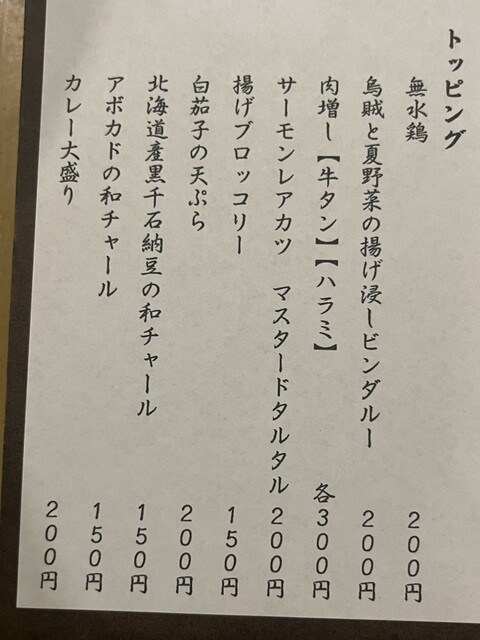 トッピング
無水鶏 200円
烏賊と夏野菜の揚げ浸しビンダルー 200円
肉増し【牛タン】【ハラミ】 各300円
サーモンレアカツ マスタードタルタル 200円
揚げブロッコリー 150円
白茄子の天ぷら 200円
北海道産黒千石納豆の和チャール 150円
アボカドの和チャール 150円
カレー大盛り 200円